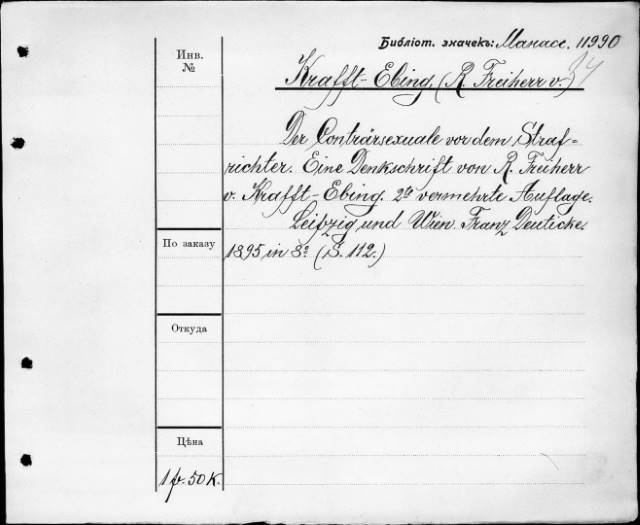 Библіот. значекъ: Манасс. 11990
Инв.
№
Krafft-Ebing, (R. Freiherr v.) 34
Der Conträrsexuale vor dem Straf-
richter. Eine Denkschrift von R. Freiherr
v. Krafft-Ebing. 2te vermehrte Auflage.
Leipzig und Wien. Franz Deuticke
1895 in 8º (S. 112.)
По заказу
Откуда
Цѣна
1 р. 50 к.